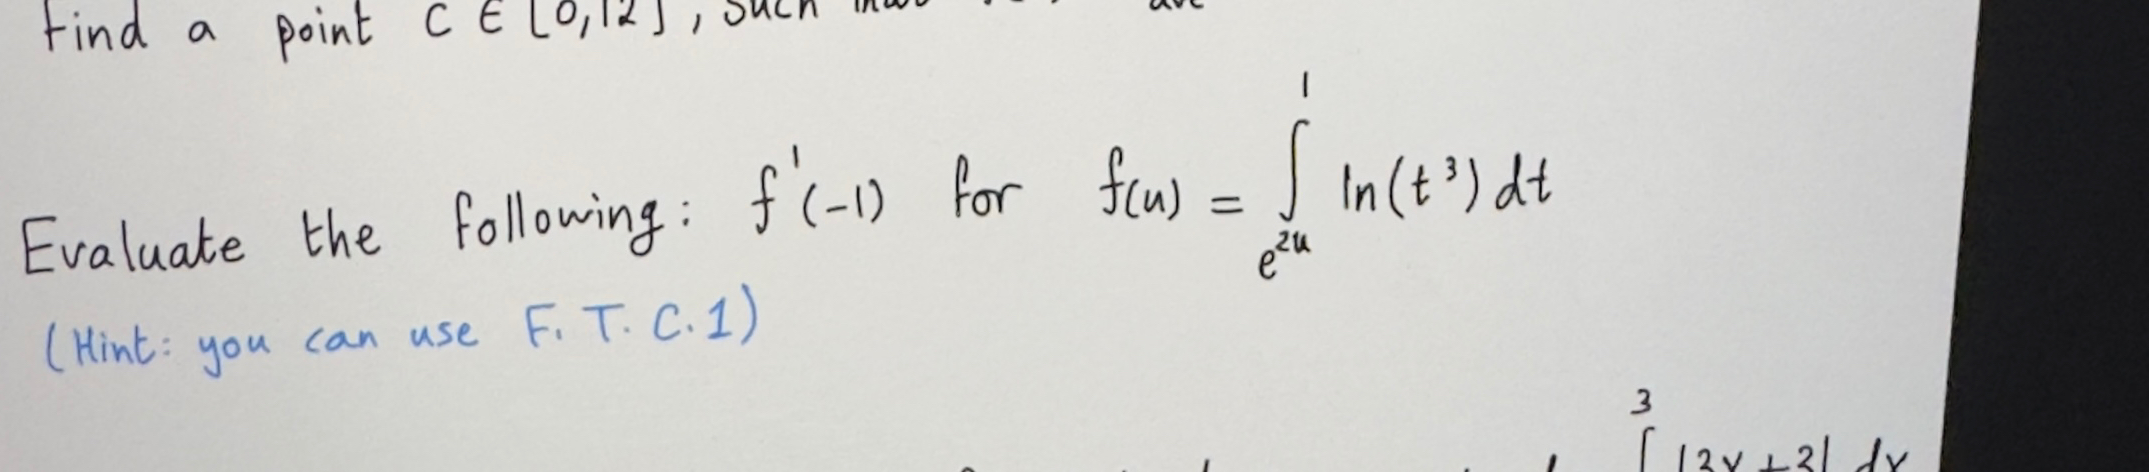 Find a point C ∈ [0,12], such
Evaluate the following: f'(-1) for f(u) = ∫_{e^{2u}}^{1} ln(t³) dt
(Hint: you can use F.T.C.1)
∫^{3} |3x+3| dx